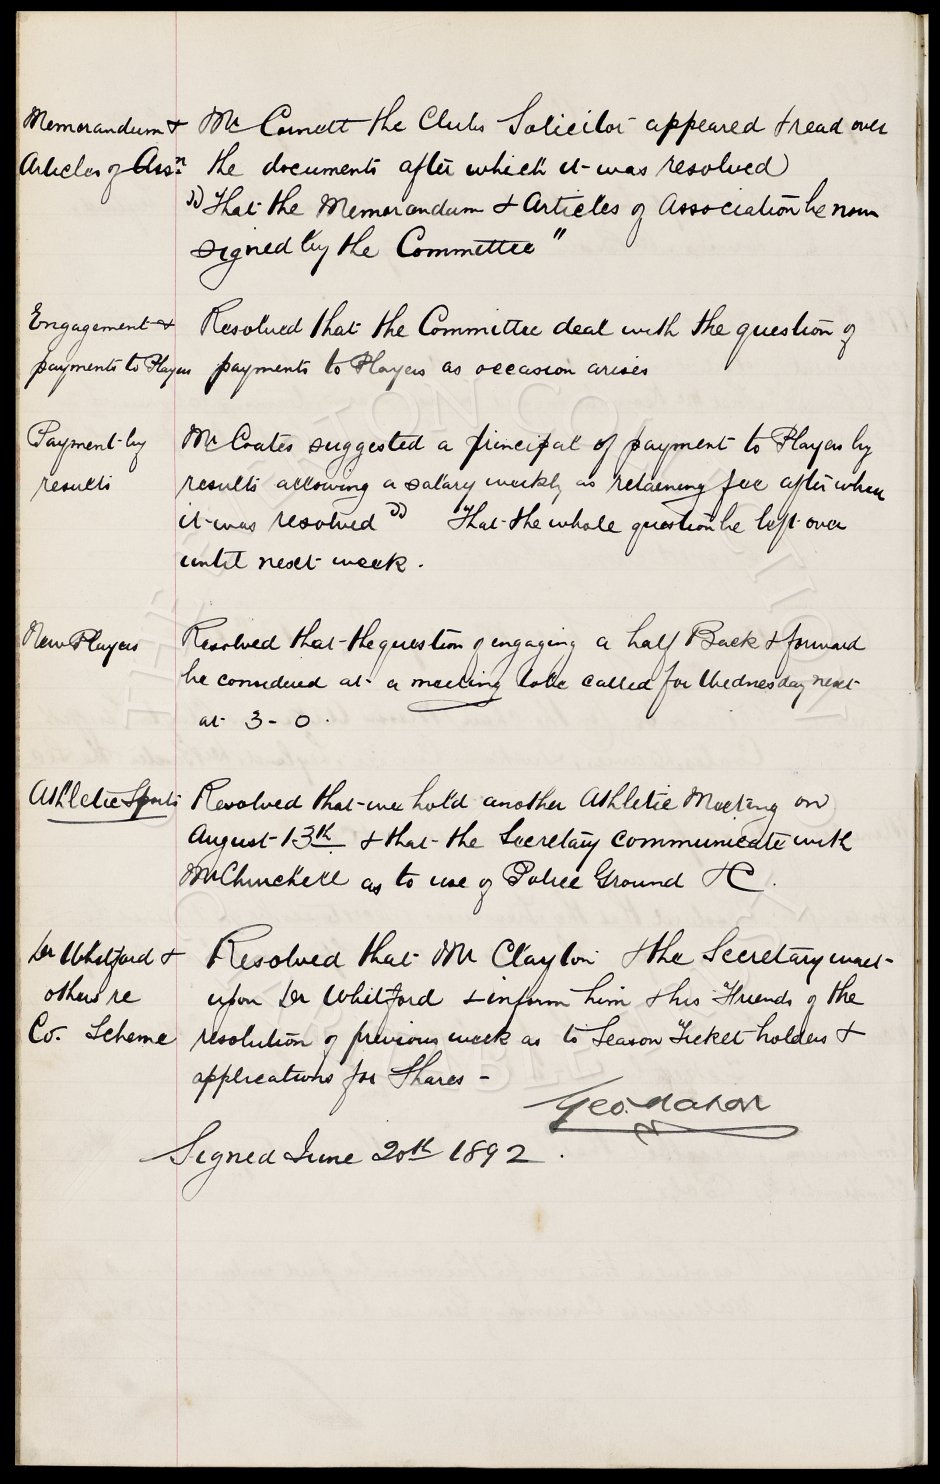 Memorandum & Mr Cornett the Clubs Solicitor appeared & read over
Articles of Assn: the documents after which it was resolved
"That the Memorandum & Articles of Association be now
signed by the Committee"
Engagement & Resolved that the Committee deal with the question of
payments to Players payments to Players as occasion arises
Payment by Mr Coates suggested a principal of payment to Players by
results results allowing a salary weekly as retaining fee after when
it was resolved " That the whole question be left over
until next week.
New Players Resolved that the question of engaging a half Back & forward
be considered at a meeting to be called for Wednesday next
at 3-0.
Athletic Sports Resolved that we hold another Athletic Meeting on
August 13th & that the Secretary communicate with
Mr Churchill as to use of Police Ground &C.
Dr Whitford & Resolved that Mr Clayton & the Secretary wait
others re upon Dr Whitford & inform him & his Friends of the
Co. Scheme resolution of previous week as to Season Ticket holders &
applications for Shares -
Geo. Mahon
Signed June 20th 1892.